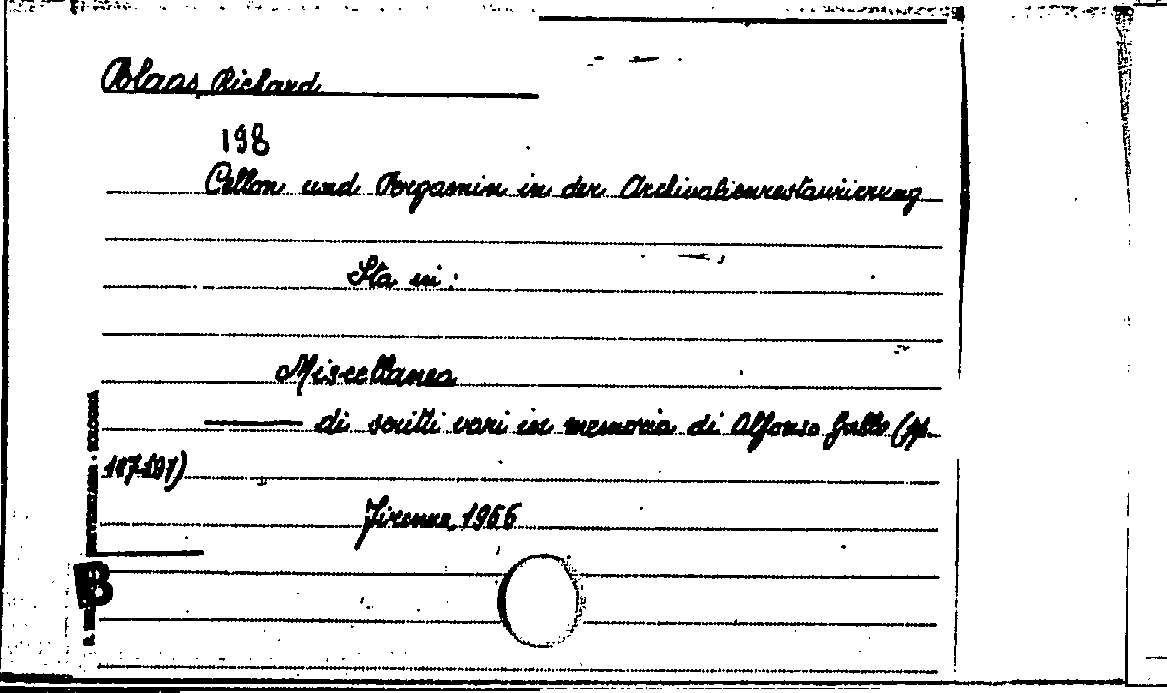 Blaas, Richard
198
Cellon und Pergamin in der Archivalienrestaurierung
Sta in:
Miscellanea
di scritti vari in memoria di Alfonso Gallo (pp.
Firenze, 1956
UNIVERSITARIA • BOLOGNA
B